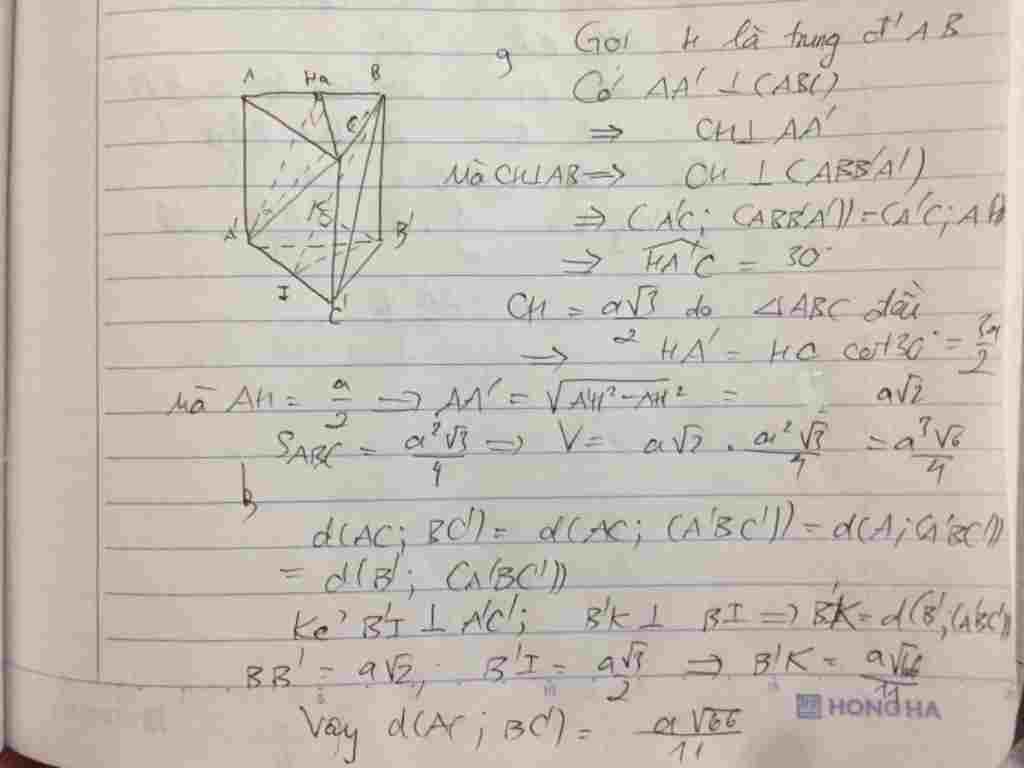 a
Gọi H là trung đ' AB
Có AA' ⊥ (ABC)
⇒ CH ⊥ AA'
Mà CH ⊥ AB ⇒ CH ⊥ (ABB'A')
⇒ (A'C; (ABB'A')) = (A'C; A'H)
⇒ HA'C = 30°
CH = a√3/2 do △ABC đều
⇒ HA' = HC cot 30° = 3a/2
Mà AH = a/2 ⇒ AA' = √(A'H² - AH²) = a√2
S_ABC = a²√3/4 ⇒ V = a√2 . a²√3/4 = a³√6/4
b
d(AC; BC') = d(AC; (A'BC')) = d(A; (A'BC'))
= d(B'; (A'BC'))
Kẻ B'I ⊥ A'C'; B'K ⊥ BI ⇒ B'K = d(B'; (A'BC'))
BB' = a√2; B'I = a√3/2 ⇒ B'K = a√66/11
Vậy d(AC; BC') = a√66/11
HONG HA
A H a B
C
K
A' B'
I
C'